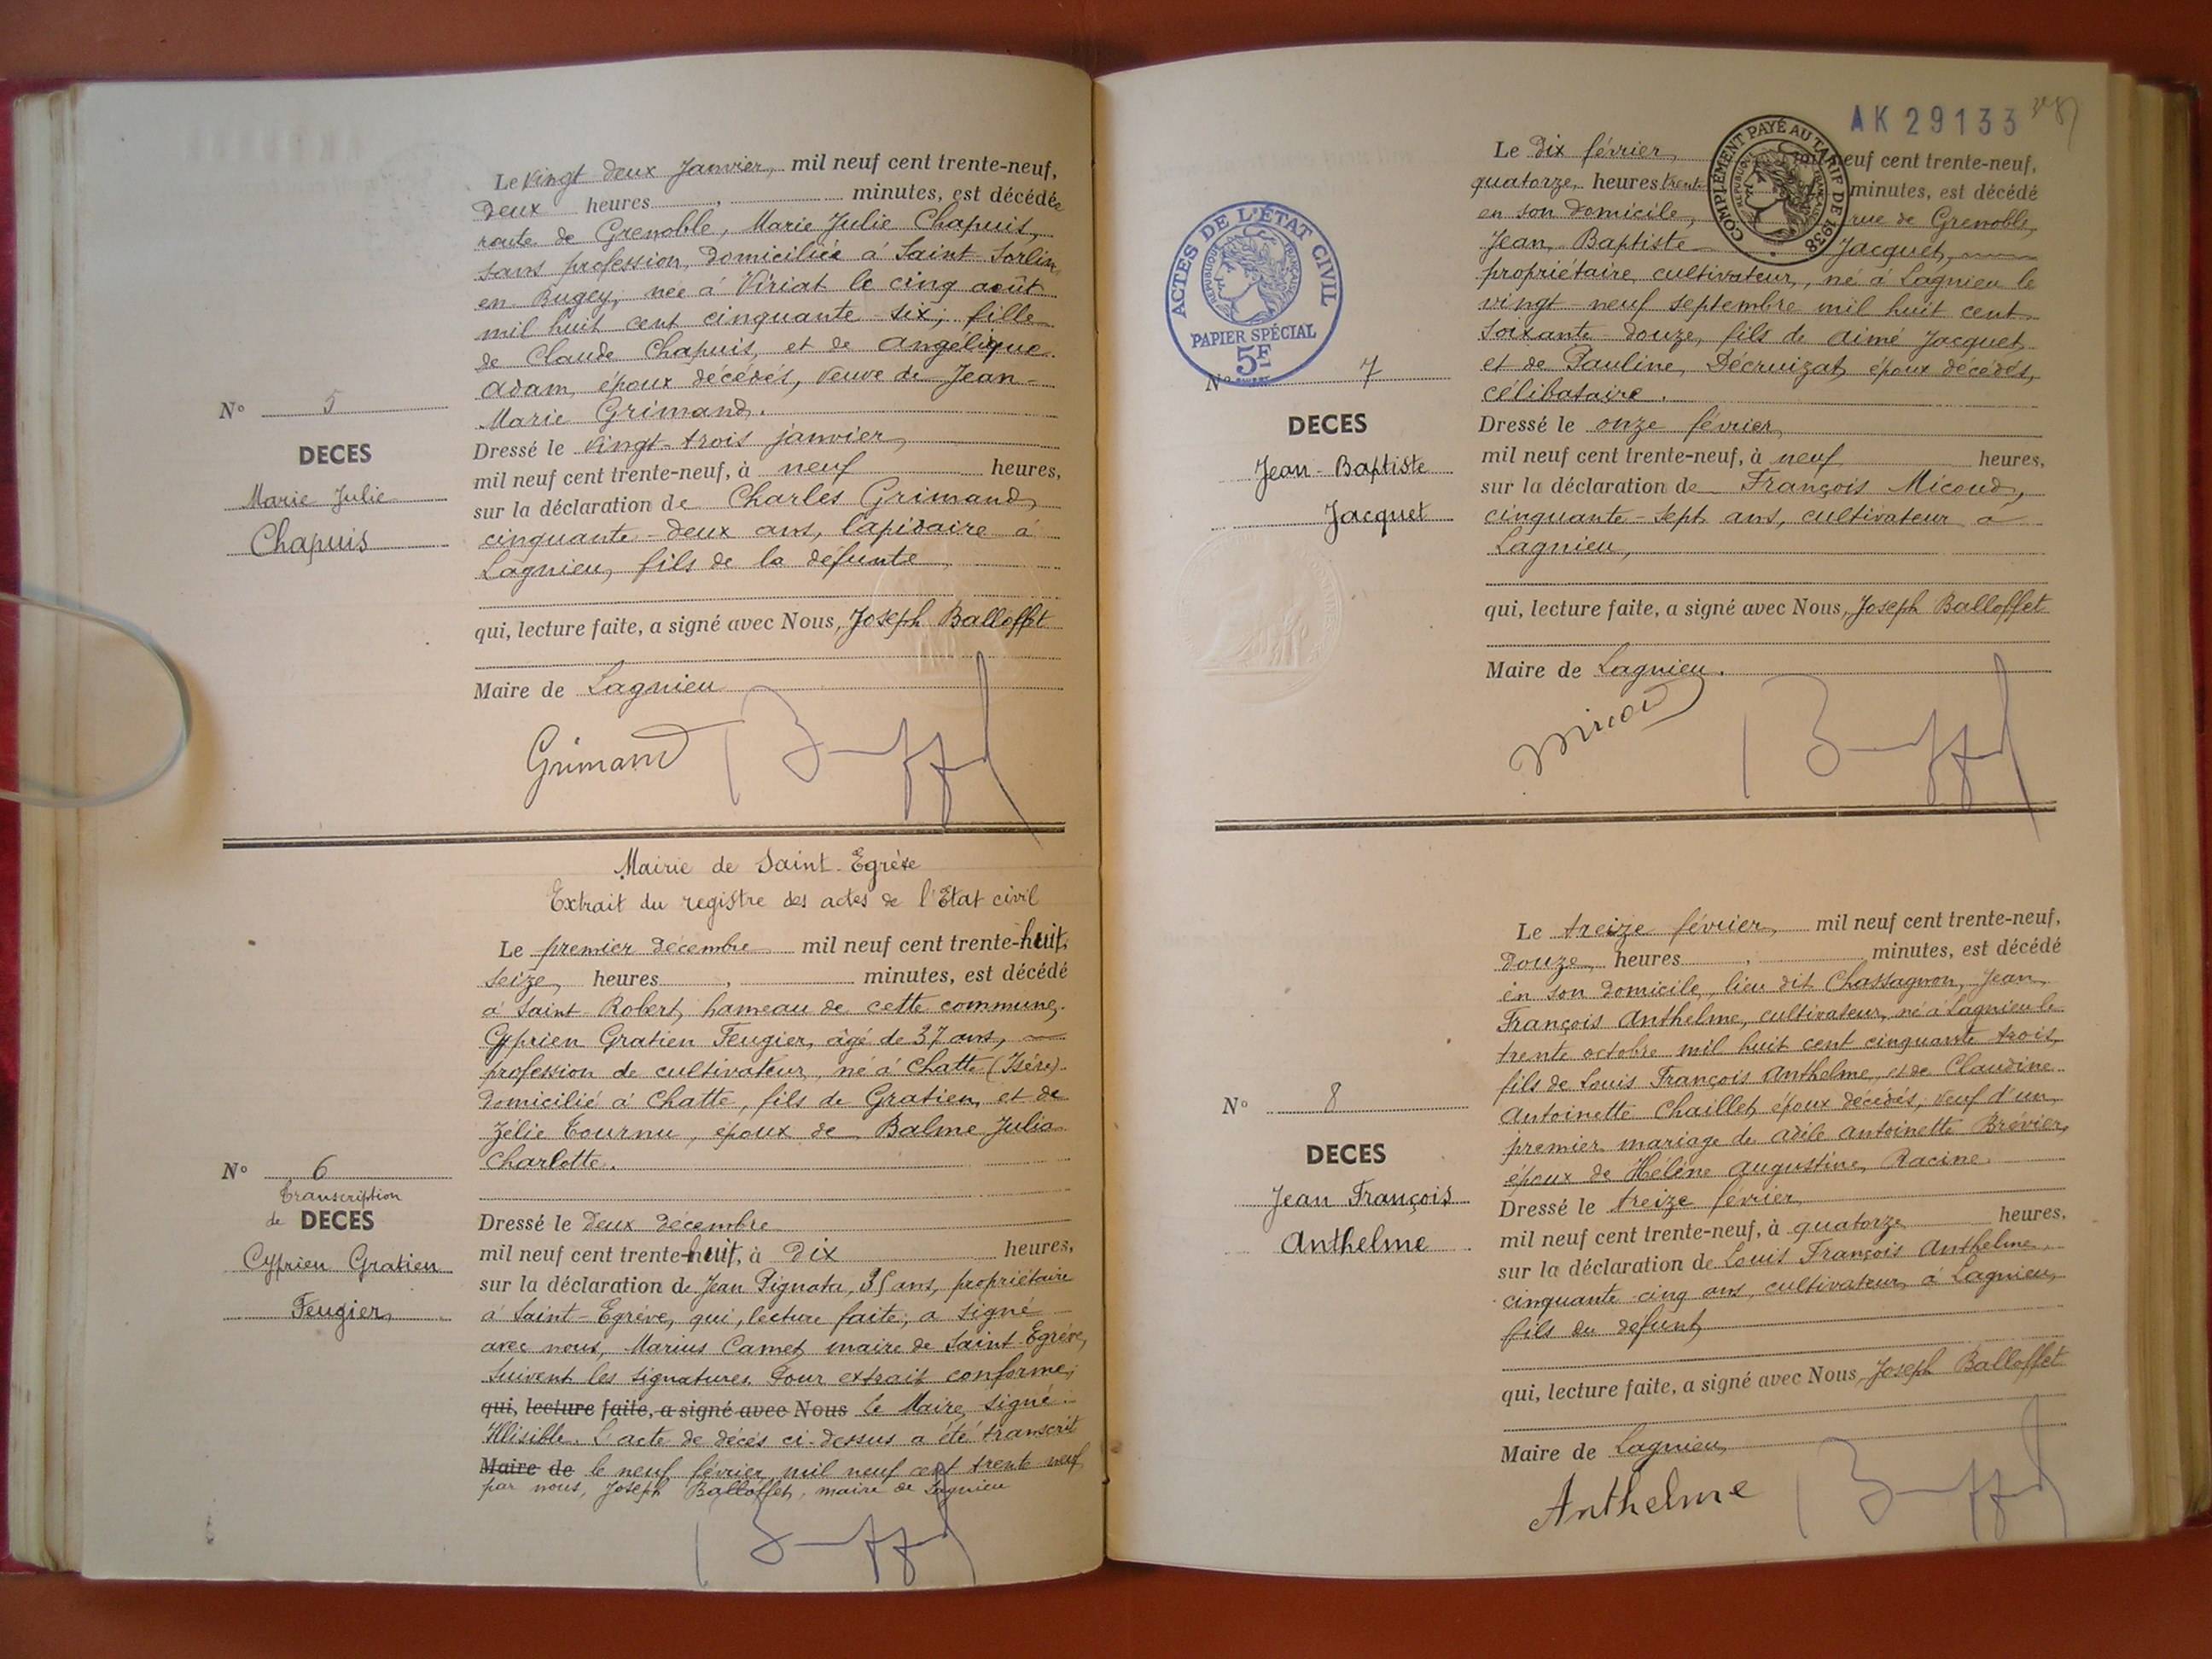 Le vingt deux Janvier, mil neuf cent trente-neuf,
Deux heures , minutes, est décédée
route de Grenoble, Marie Julie Chapuis,
sans profession, domiciliée à Saint Sorlin
en Bugey, née à Viriat le cinq août
mil huit cent cinquante six, fille
de Claude Chapuis, et de Angélique
Adam, époux décédés, veuve de Jean-
Marie Grimand.
N° 5
DECES
Marie Julie
Chapuis
Dressé le vingt-trois janvier,
mil neuf cent trente-neuf, à neuf heures,
sur la déclaration de Charles Grimand,
cinquante-deux ans, lapidaire à
Lagnieu, fils de la défunte
qui, lecture faite, a signé avec Nous, Joseph Balloffet
Maire de Lagnieu
Grimand
Mairie de Saint-Egrève
Extrait du registre des actes de l'Etat civil
Le premier décembre mil neuf cent trente-huit,
seize heures , minutes, est décédé
à Saint-Robert, hameau de cette commune,
Cyprien Gratien Feugier, âgé de 37 ans,
profession de cultivateur, né à Chatte (Isère)
domicilié à Chatte, fils de Gratien, et de
Zélie Tournu, époux de Balme Julia
Charlotte.
N° 6
Transcription
de DECES
Cyprien Gratien
Feugier
Dressé le deux décembre
mil neuf cent trente-huit, à dix heures,
sur la déclaration de Jean Pignata, 35 ans, propriétaire
à Saint-Egrève, qui, lecture faite, a signé
avec nous, Marius Camet, maire de Saint-Egrève,
suivent les signatures. Pour extrait conforme,
qui, lecture faite, a signé avec Nous le Maire, signé :
Illisible. L'acte de décès ci-dessus a été transcrit
Maire de le neuf février mil neuf cent trente neuf
par nous, Joseph Balloffet, maire de Lagnieu
AK 29133
COMPLÉMENT PAYÉ AU TARIF DE 1938
RÉPUBLIQUE FRANÇAISE
Le dix février, mil neuf cent trente-neuf,
quatorze heures trente minutes, est décédé
en son domicile, rue de Grenoble,
Jean Baptiste Jacquet,
propriétaire cultivateur, né à Lagnieu le
vingt-neuf septembre mil huit cent
soixante-douze, fils de Aimé Jacquet,
et de Pauline Décruizat, époux décédés,
célibataire.
ACTES DE L'ÉTAT CIVIL
RÉPUBLIQUE FRANÇAISE
PAPIER SPÉCIAL
5F
N° 7
DECES
Jean-Baptiste
Jacquet
Dressé le onze février,
mil neuf cent trente-neuf, à neuf heures,
sur la déclaration de François Micoud,
cinquante-sept ans, cultivateur à
Lagnieu,
qui, lecture faite, a signé avec Nous, Joseph Balloffet
Maire de Lagnieu.
Micoud
Le treize février, mil neuf cent trente-neuf,
Douze heures , minutes, est décédé
en son domicile, lieu dit Chassagnon, Jean
François Anthelme, cultivateur, né à Lagnieu le
trente octobre mil huit cent cinquante trois,
fils de Louis François Anthelme, et de Claudine
Antoinette Chaillet, époux décédés, veuf d'un
premier mariage de Adèle Antoinette Brévier,
époux de Hélène Augustine Racine
N° 8
DECES
Jean François
Anthelme
Dressé le treize février
mil neuf cent trente-neuf, à quatorze heures,
sur la déclaration de Louis François Anthelme,
cinquante cinq ans, cultivateur à Lagnieu,
fils du défunt,
qui, lecture faite, a signé avec Nous, Joseph Balloffet
Maire de Lagnieu,
Anthelme